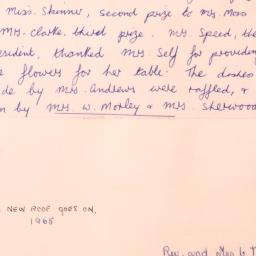 Miss. Skinner, second prize to Mrs. Moss
Mrs. Clarke, third prize. Mrs. Speed, the
resident, thanked Mrs Self for providing
flowers for her table. The dishes
de by Mrs. Andrews were raffled, &
n by Mrs. W. Morley & Mrs. Sherwood
NEW ROOF GOES ON,
1965
Rev. and Mrs